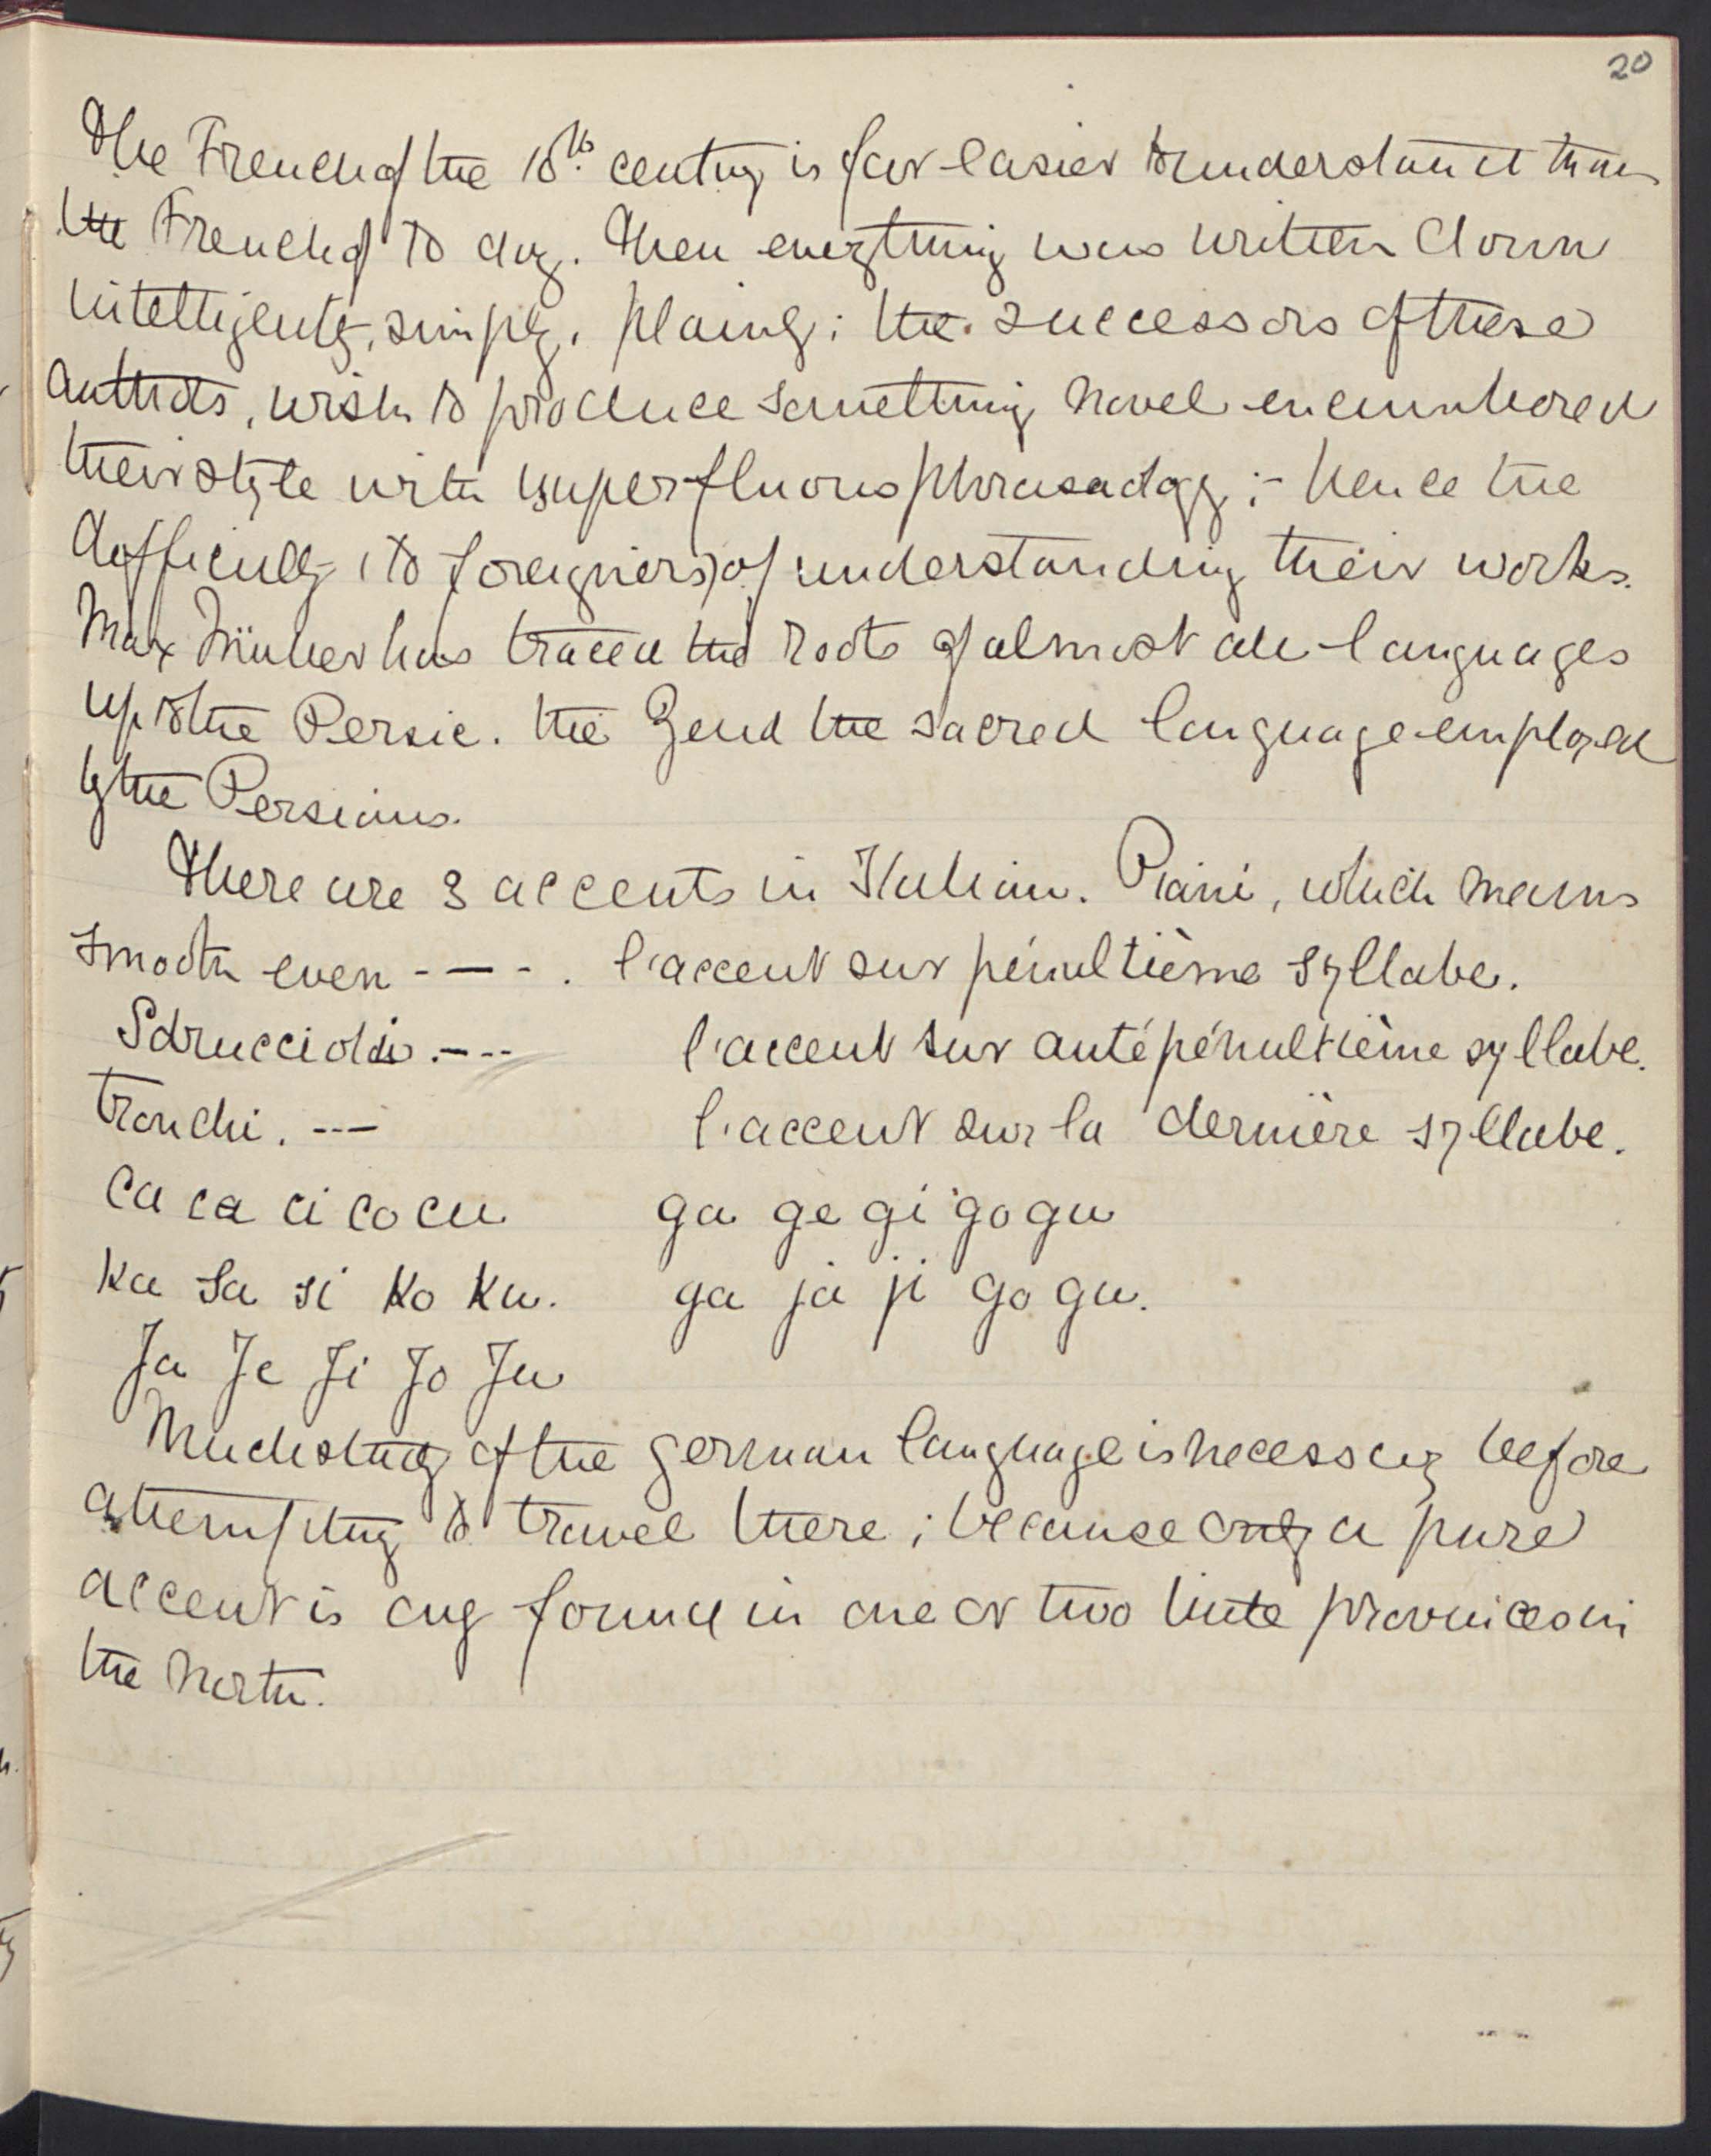 20
The French of the 18th. century is far easier to understand than
the French of to day. Then everything was written down
intelligently, simply, plainly; the successors of these
authors, wish to produce something novel encumbered
their style with superfluous phrasadogy;- hence the
difficulty (to foreigners) of understanding their works.
Max Müller has traced the roots of almost all languages
up to the Persic. The Zend the sacred language employed
by the Persians.
There are 3 accents in Italian. Piani, which means
smooth even - — - . l'accent sur pénultième syllabe.
Sdruccioli. — - - l'accent sur antépénultième syllabe.
tronchi. - - — l'accent sur la dernière syllabe.
ca ca ci co cu ga ge gi go gu
ka sa si ko ku. ga ja ji go gu.
Ja Je Ji Jo Ju
Much study of the german language is necessary before
attempting to travel there; because only a pure
accent is only found in one or two little provinces in
the North.